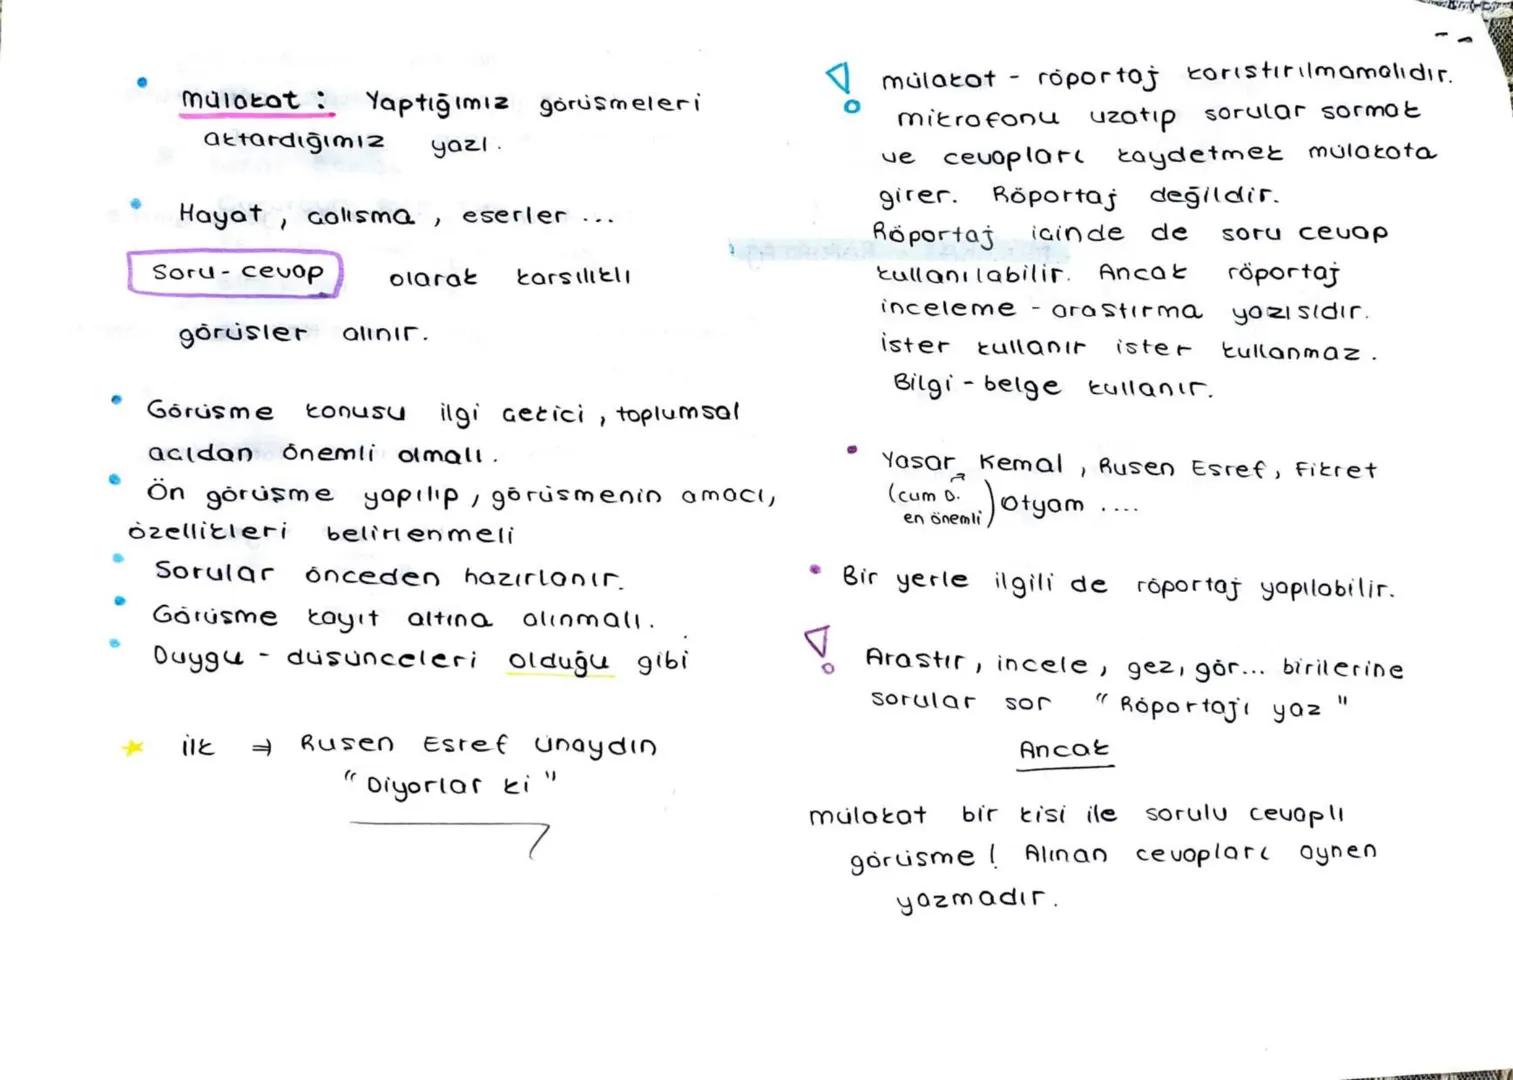 • mülakat : Yaptığımız görüşmeleri
aktardığımız yazı.
• Hayat, çalışma, eserler ...
Soru-cevap olarak karşılıklı
görüşler alınır.
• Görüşme konusu ilgi çekici, toplumsal
açıdan önemli olmalı.
• Ön görüşme yapılıp, görüşmenin amacı,
özellikleri belirlenmeli
• Sorular önceden hazırlanır.
• Görüşme kayıt altına alınmalı.
• Duygu - düşünceleri olduğu gibi
★ ilk ⇒ Ruşen Eşref Ünaydın
"Diyorlar ki"
! mülakat - röportaj karıştırılmamalıdır.
mikrofonu uzatıp sorular sormak
ve cevapları kaydetmek mülakata
girer. Röportaj değildir.
Röportaj içinde de soru cevap
kullanılabilir. Ancak röportaj
inceleme - araştırma yazısıdır.
ister kullanır ister kullanmaz.
Bilgi - belge kullanır.
• Yaşar Kemal, Ruşen Eşref, Fikret
(cum D. en önemli) Otyam ....
• Bir yerle ilgili de röportaj yapılabilir.
! Araştır, incele, gez, gör... birilerine
sorular sor "Röportajı yaz"
Ancak
mülakat bir kişi ile sorulu cevaplı
görüşme! Alınan cevapları aynen
yazmadır.